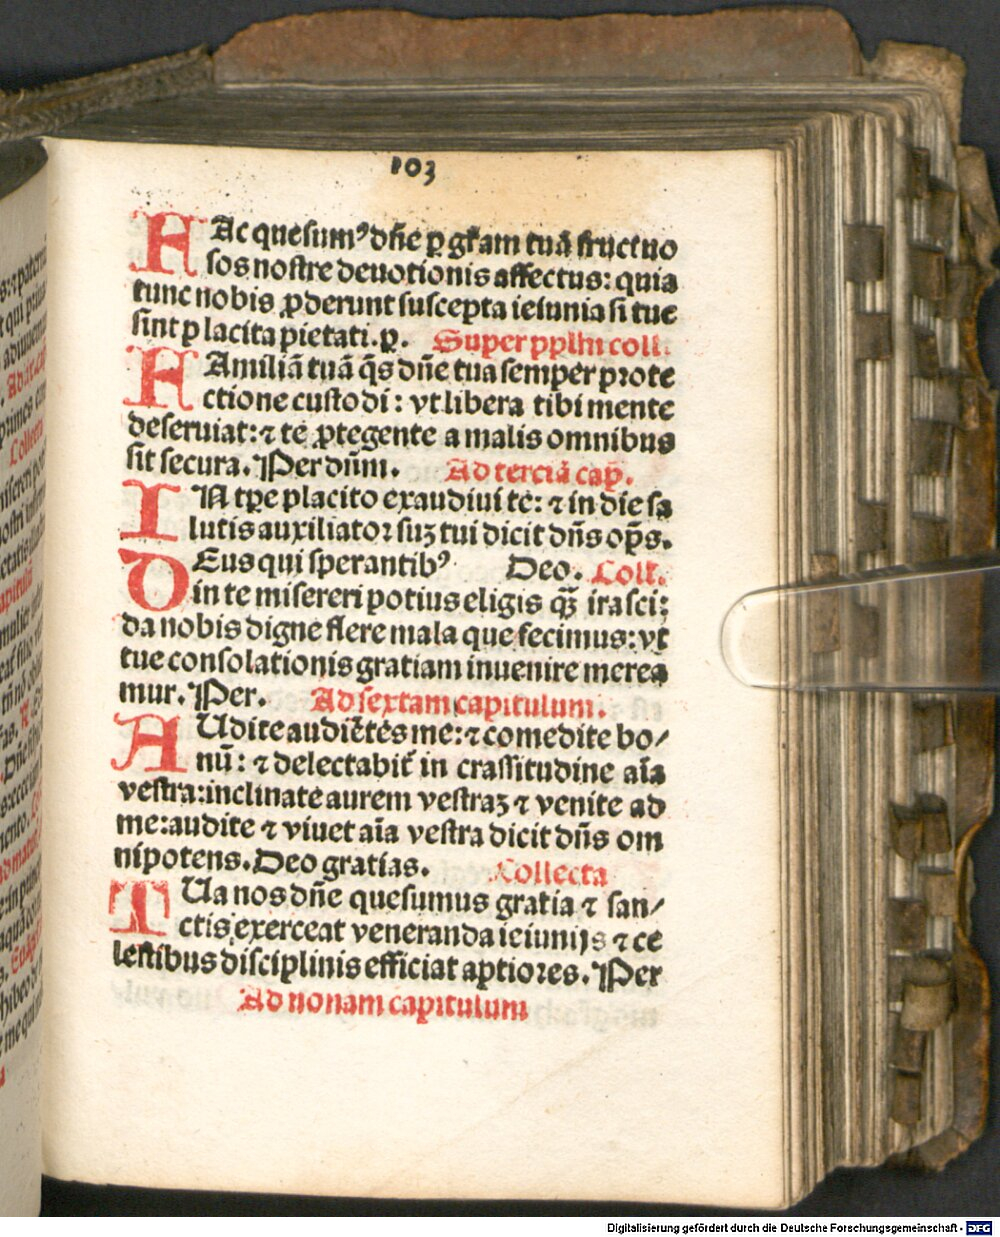 103
FAc quesumꝰ dñe ꝑ grãm tuã fructuo
sos nostre deuotionis affectus: quia
tunc nobis ꝓderunt suscepta ieiunia si tue
sint placita pietati. ꝑ. Super pplm coll.
FAmiliã tuã q̃s dñe tua semper prote
ctione custodi: vt libera tibi mente
deseruiat: ⁊ te ꝓtegente a malis omnibus
sit secura. Per dñm. Ad terciã cap̃.
IN tp̃e placito exaudiui te: ⁊ in die sa
lutis auxiliator suꝫ tui dicit dñs op̃s.
DEus qui sperantibꝰ Deo. Coll.
in te misereri potius eligis q̃ꝫ irasci;
da nobis digne flere mala que fecimus: vt
tue consolationis gratiam inuenire mereã
mur. Per. Ad sextam capitulum.
AUdite audiẽtes me: ⁊ comedite bo/
nũ: ⁊ delectabit̃ in crassitudine aĩa
vestra: inclinate aurem vestraꝫ ⁊ venite ad
me: audite ⁊ viuet aĩa vestra dicit dñs om
nipotens. Deo gratias. Collecta
TUa nos dñe quesumus gratia ⁊ san/
ctis exerceat veneranda ieiunijs ⁊ ce
lestibus disciplinis efficiat aptiores. Per
Ad nonam capitulum
Digitalisierung gefördert durch die Deutsche Forschungsgemeinschaft - DFG